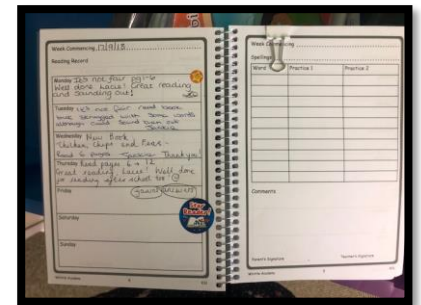 Week Commencing 17/9/18
Reading Record
Monday It's not fair pg 1-6
Well done Great reading
and sounding out!
Tuesday It's not fair read book
but struggled with some words
although could sound them out
Wednesday New Book
Chicken, Chips and
Read 6 pages Thank you!
Thursday Read pages 6 - 12
Great reading, Well done
for reading after school too
Friday
Saturday
Sunday
Star
Reader!
Week Commencing
Spellings
Word
Practice 1
Practice 2
Comments
Parent's Signature
Teacher's Signature